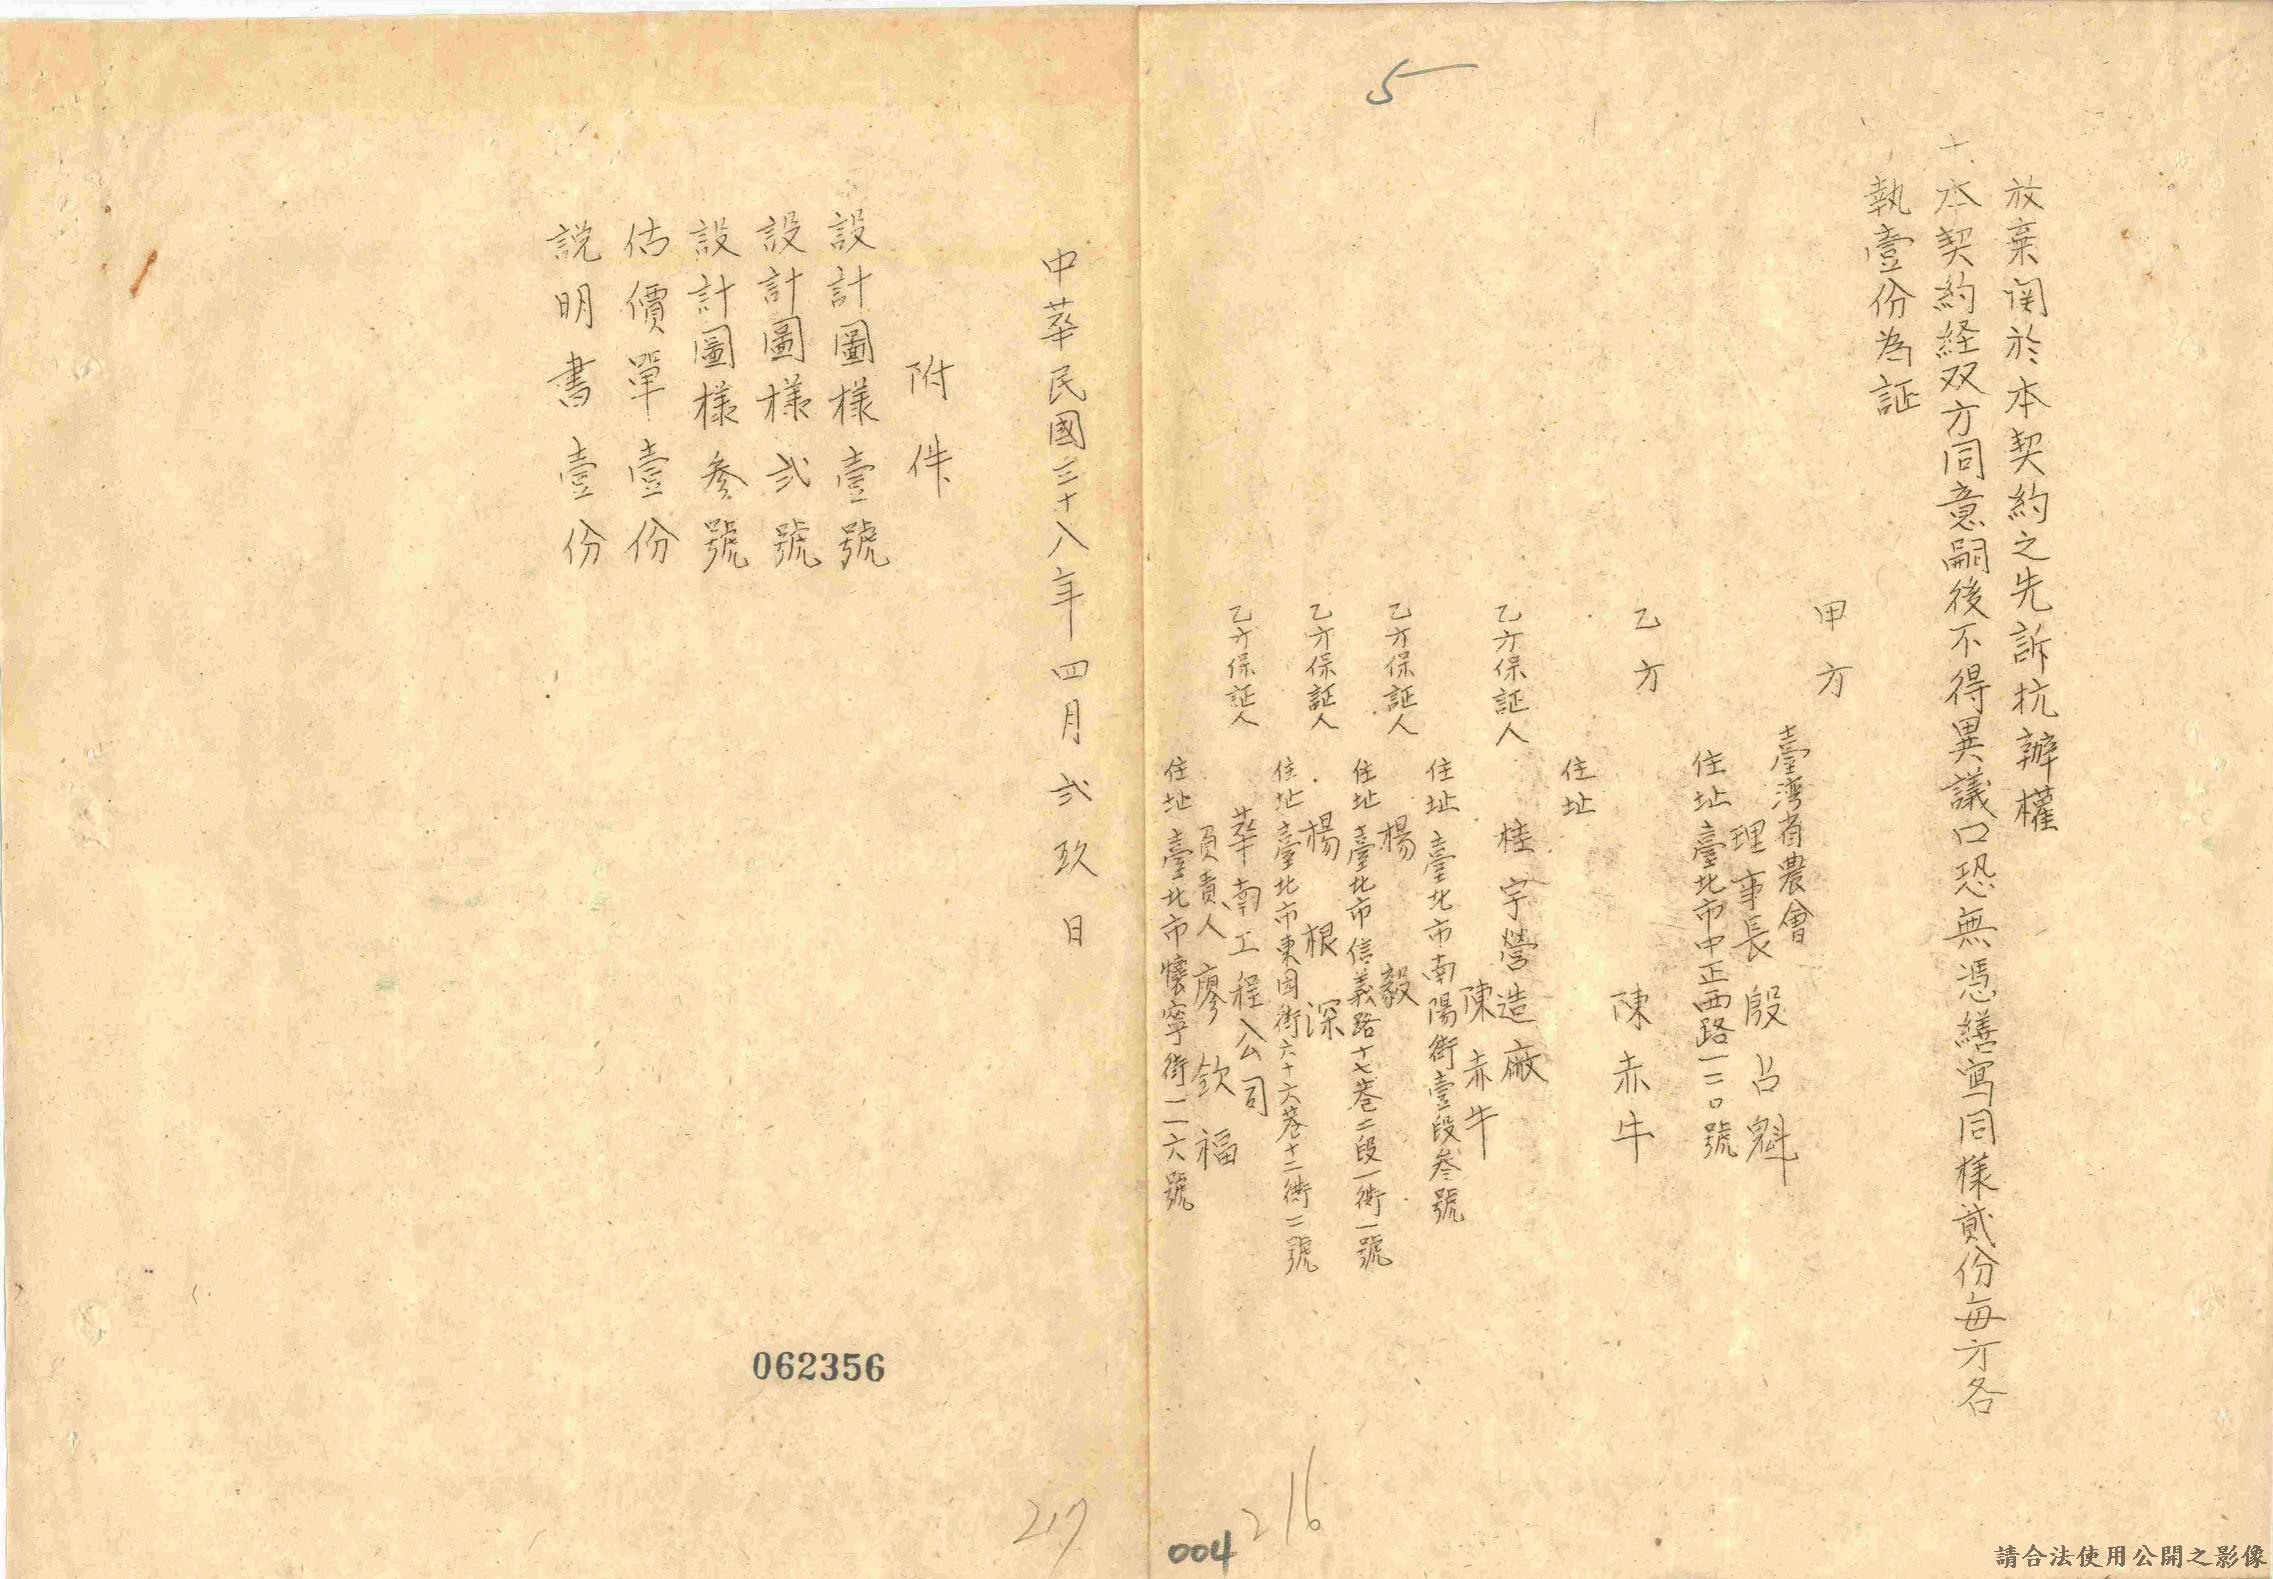 5
放棄関於本契約之先訴抗辯權
十、本契約経双方同意嗣後不得異議口恐無憑繕寫同樣貳份每方各
執壹份為証
甲方
臺湾省農會
理事長 殷占魁
住址 臺北市中正西路一二〇號
乙方
陳赤牛
住址
乙方保証人
桂宇營造廠
陳赤牛
住址 臺北市南陽街壹段叁號
乙方保証人
楊毅
住址 臺北市信義路十七巷二段一衖一號
乙方保証人
楊根深
住址 臺北市東園街六十六巷十二衖二號
乙方保証人
華南工程公司
負責人 廖欽福
住址 臺北市懷寧街一一六號
中華民國三十八年四月弍玖日
附件
設計圖樣壹號
設計圖樣弍號
設計圖樣參號
估價單壹份
説明書壹份
062356
217
216
004
請合法使用公開之影像